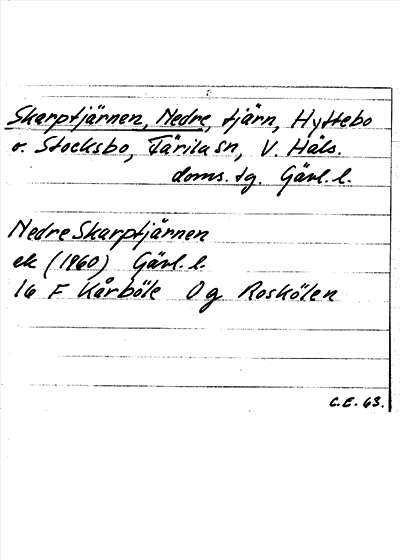 Skarptjärnen, Nedre, tjärn, Hyttebo
o. Stocksbo, Färila sn, V. Häls.
doms. tg. Gävl. l.
Nedre Skarptjärnen
ek (1960) Gävl. l.
16 F Kårböle 0 g Roskölen
C.E. 63.